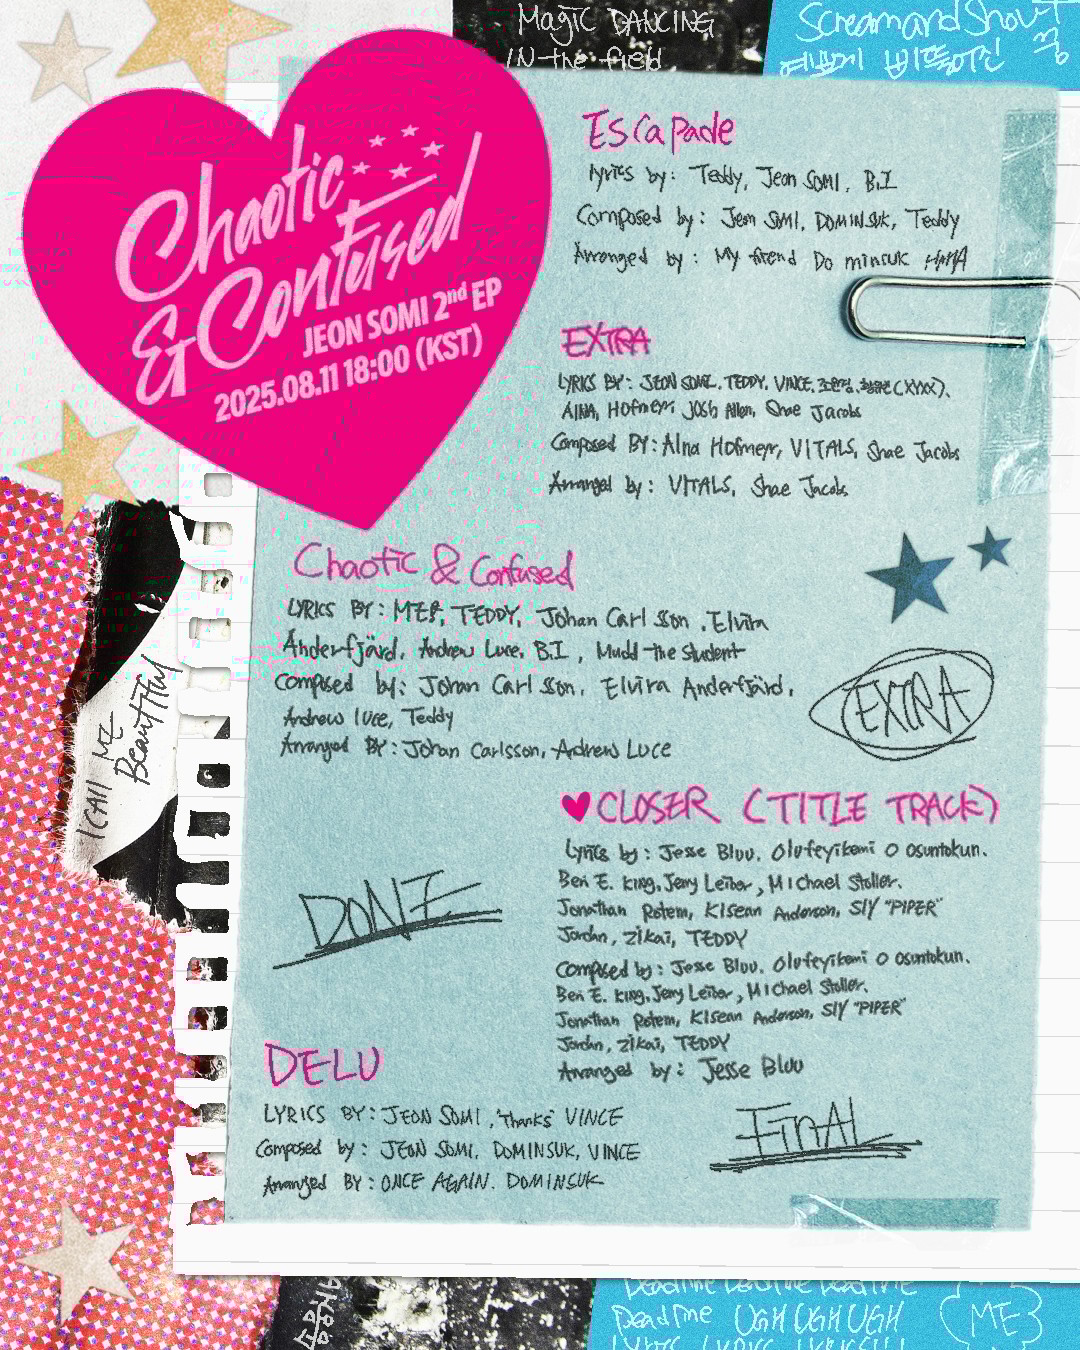 Magic DANCING
IN the field
Scream and Shout
Chaotic
& Confused
JEON SOMI 2nd EP
2025.08.11 18:00 (KST)
Escapade
lyrics by: Teddy, Jeon SOMI, B.I
Composed by: Jeon SOMI, DOMINSUK, Teddy
Arranged by: My friend Do minsuk HAHA
EXTRA
LYRICS BY: JEON SOMI, TEDDY, VINCE, (XYXX),
AINA, Hofmeyr Josh Allen, Shae Jacobs
Composed BY: AIna Hofmeyr, VITALS, Shae Jacobs
Arranged by: VITALS, Shae Jacobs
Chaotic & Confused
LYRICS BY: TEDDY, Johan Carlsson, Elvira
Anderfjärd, Andrew Luce, B.I, Mudd the student
Composed by: Johan Carlsson, Elvira Anderfjärd,
Andrew luce, Teddy
Arranged BY: Johan Carlsson, Andrew Luce
EXTRA
I CAll ME
Beautiful
CLOSER (TITLE TRACK)
Lyrics by: Jesse Bluu, Olufeyikemi O Osuntokun,
Ben E. King, Jerry Leiber, Michael Stoller,
Jonathan Rotem, Kisean Anderson, Sly "PIPER"
Jordan, Zikai, TEDDY
Composed by: Jesse Bluu, Olufeyikemi O Osuntokun,
Ben E. King, Jerry Leiber, Michael Stoller,
Jonathan Rotem, Kisean Anderson, Sly "PIPER"
Jordan, Zikai, TEDDY
Arranged by: Jesse Bluu
DONE
DELU
LYRICS BY: JEON SOMI, "Thanks" VINCE
Composed by: JEON SOMI, DOMINSUK, VINCE
Arranged BY: ONCE AGAIN. DOMINSUK
FinAL
Deadline Deadline Deadline
Deadline UGH UGH UGH
ME